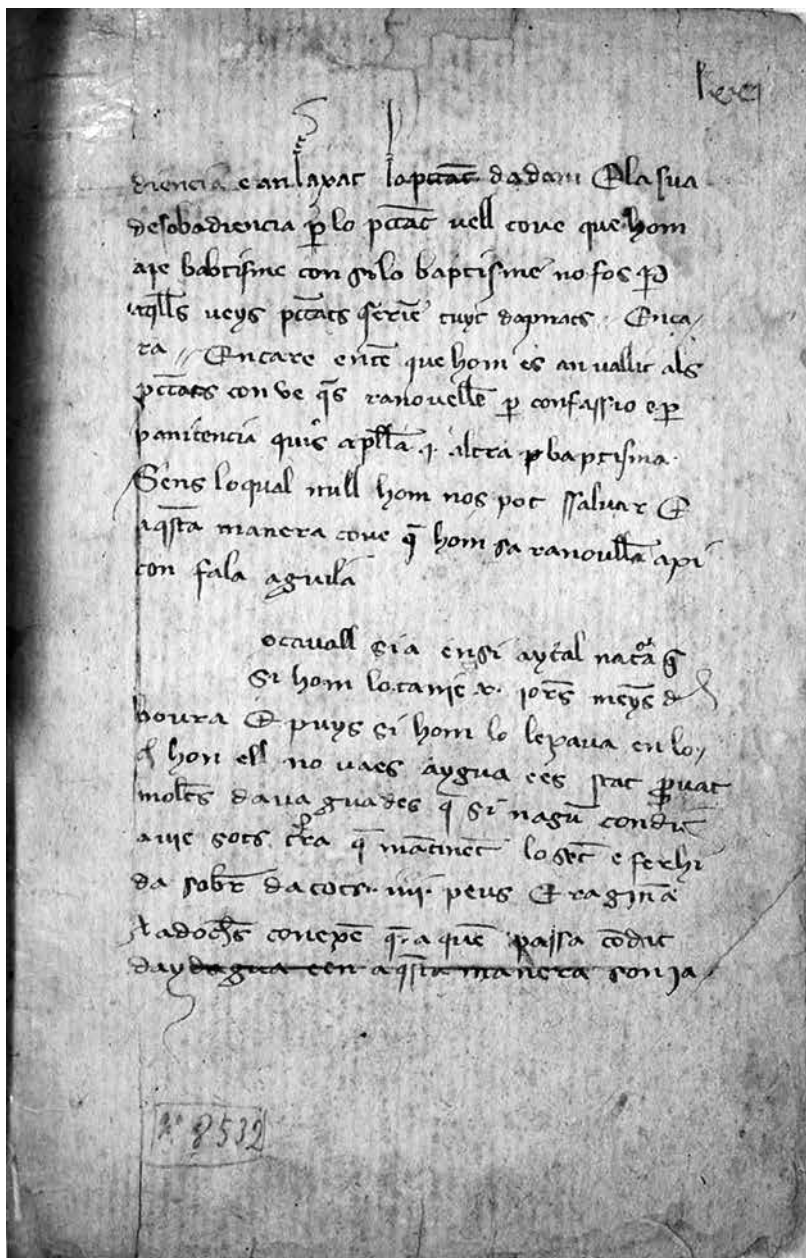 diencia e an laxat lo pccat dadam E la sua
desobadiencia p̱ lo pccat vell cove que hom
aie babtisme con si lo baptisme no fos
aq̄lls veys pccats serien tuyt dapnats Enca
ra Encare enten que hom es anvallit als
pccats conve q̄s ranovelle p̱ confassio e p̱
panitencia quis apl̄la .i. altra p baptisma
Sens lo qual null hom nos pot ssalvar E
aq̄sta manera cove q̄ hom sa ranovlla axi
con fa la aguila
ocavall sia en si aytal nat̄a
Si hom lo tanie x. iorns meyns de
boura E puys si hom lo lexava en lo
hon ell no vaes aygua e es stat p̱vat
moltes davaguades q̄ si nagū condut
avie sots t̄ra q̄ mātinēt lo sent e ferhi
da sobr̄ da tots .iiii. peus E raginā
adochs conexē q̄ aquē passa cōdut
day dagua e en aq̄sta manera son ja
Nº 8532